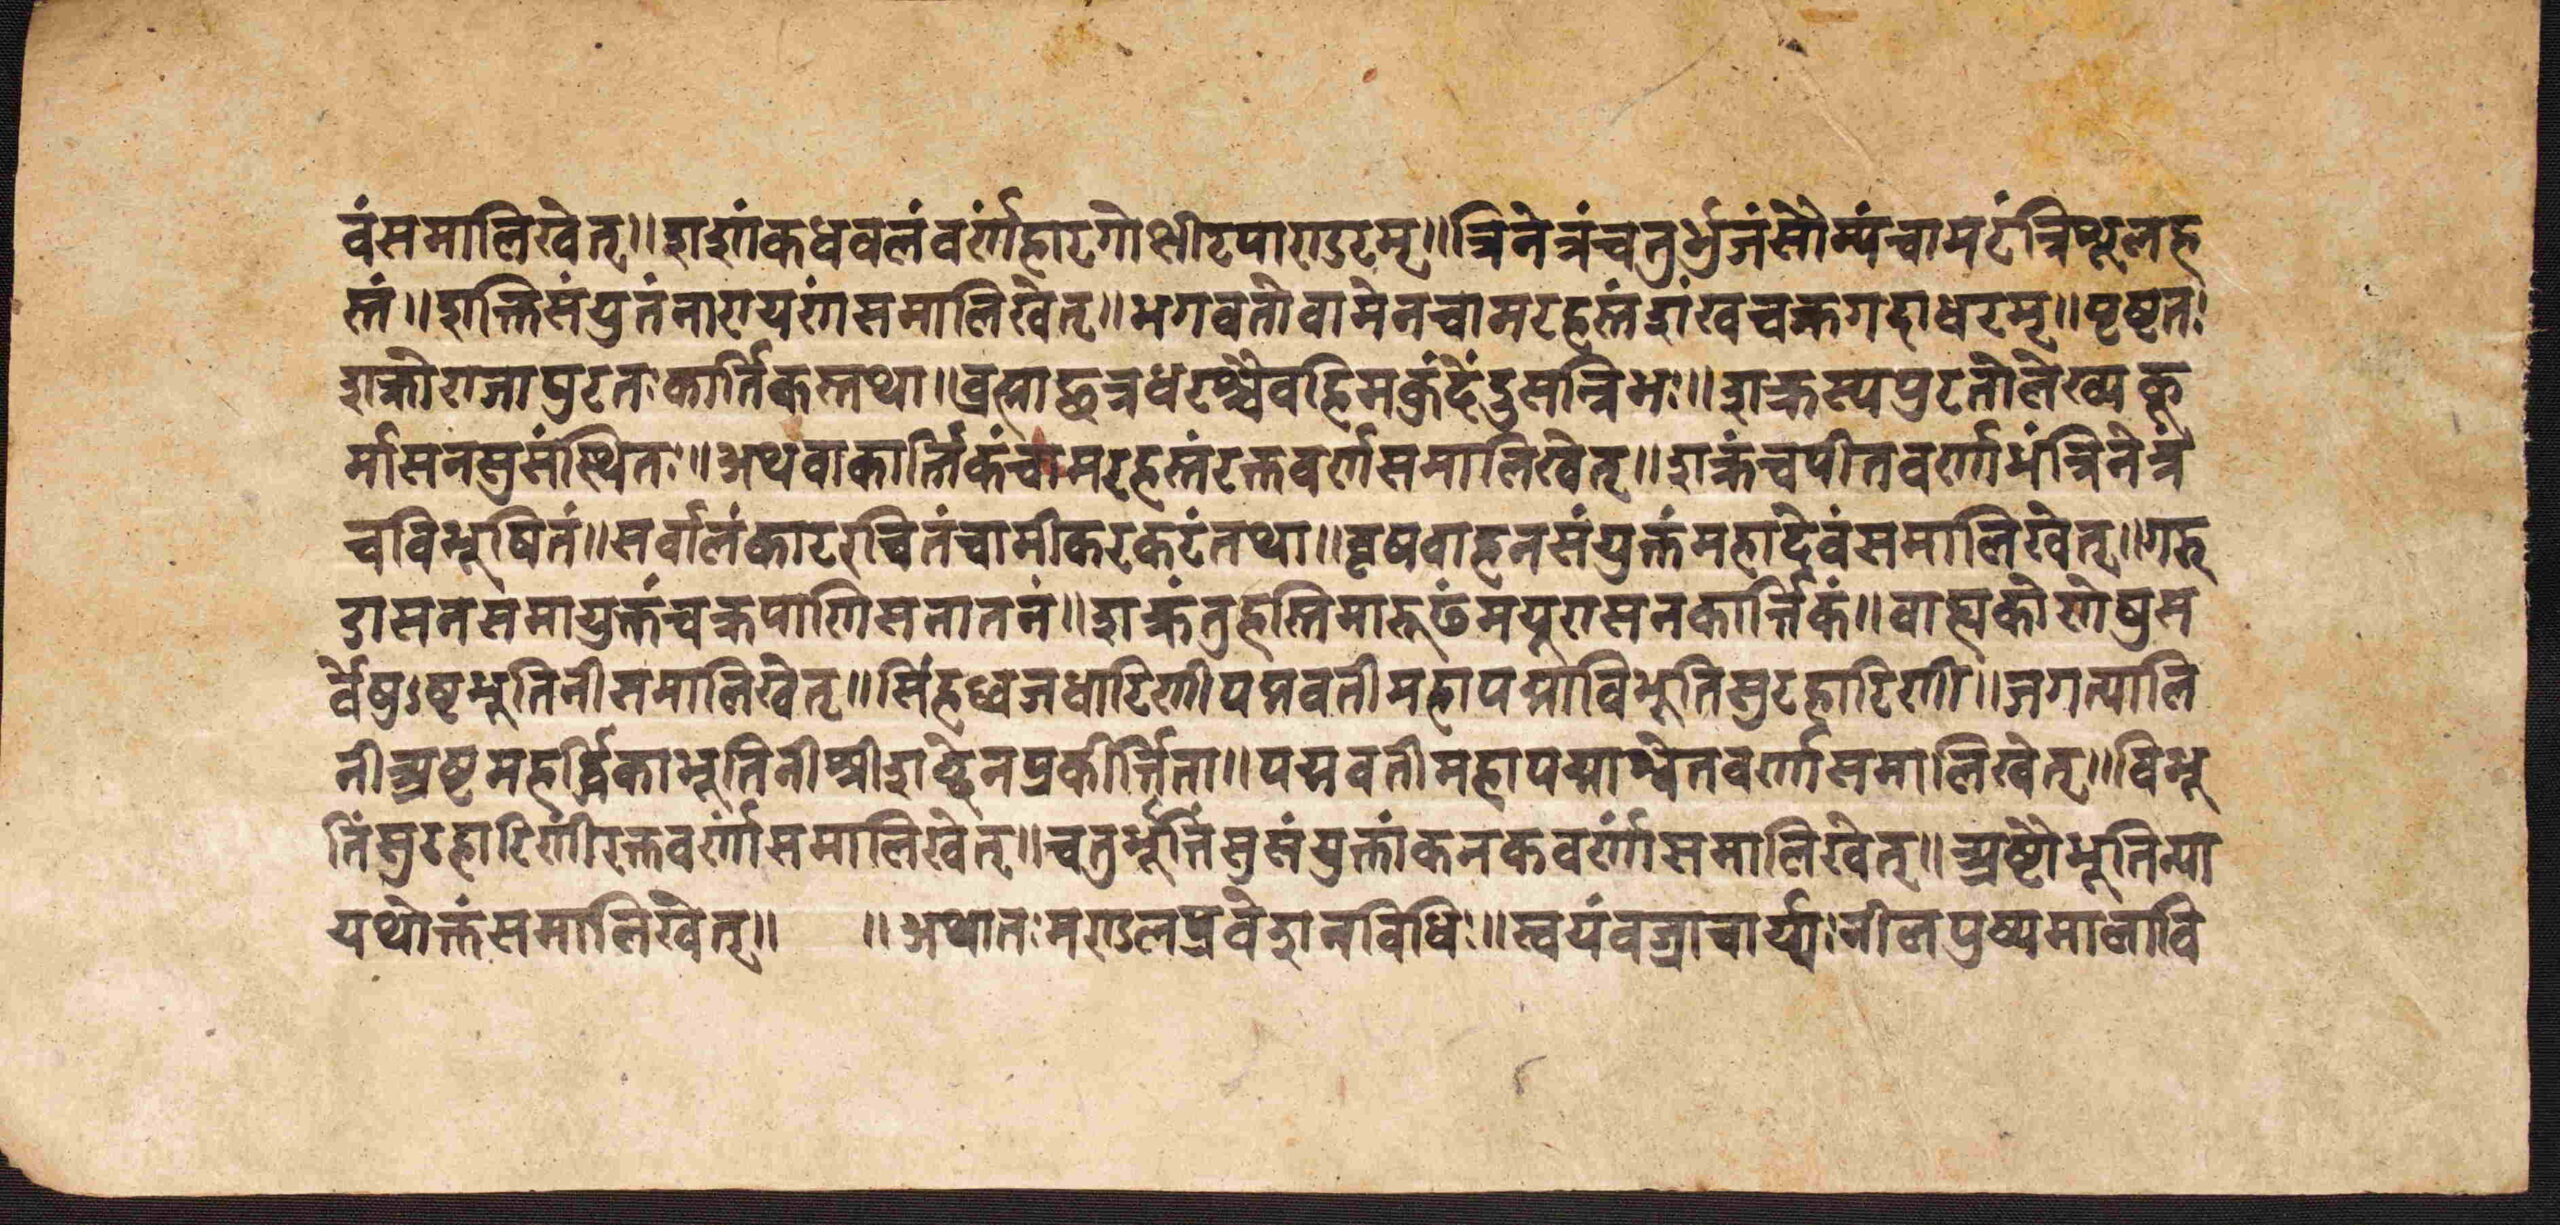 वंसमालिखेत्॥शशांकधवलंवर्ण्णंहारगोक्षीरपाण्डरम्॥त्रिनेत्रंचतुर्भुजंसौम्यंचामरंत्रिशूलह
स्तं॥शान्तिसंयुतंनारायणंसमालिखेत्॥भगवतोवामेनचामरहस्तंशंखचक्रगदाधरम्॥पृष्ठतः
शक्रोराजापुरतःकार्तिकस्तथा॥ब्रह्माछत्रधरश्चैवहिमकुंदेंदुसन्निभः॥शक्रस्यपुरतोलेख्यकू
र्मासनसुसंस्थितः॥अथवाकार्त्तिकंचामरहस्तंरक्तवर्ण्णसमालिखेत्॥शक्रंचपीतवर्ण्णाभंत्रिनेत्रं
चविभूषितं॥सर्वालंकाररचितंचामीकरकटंतथा॥वृषवाहनसंयुक्तंमहादेवंसमालिखेत्॥गरु
डासनसमायुक्तंचक्रपाणिसनातनं॥शक्रंतुहस्तिमारूढंमयूरासनकार्त्तिकं॥वाह्यकोणेषुस
र्वेषुऽष्टभूतिनीसमालिखेत्॥सिंहध्वजधारिणीपद्मवतीमहापद्माविभूतिसुरहारिणी॥जगत्पालि
नीअष्टमहर्द्धिकाभूतिनीश्रीशब्देनप्रकीर्त्तिता॥पद्मवतीमहापद्माश्वेतवर्ण्णासमालिखेत्॥विभू
तिंसुरहारिणींरक्तवर्ण्णांसमालिखेत्॥चतुर्भूर्त्तिसुसंयुक्तांकनकवर्ण्णांसमालिखेत्॥अष्टौभूतिन्या
यथोक्तंसमालिखेत्॥ ॥अथातःमण्डलप्रवेशनविधिः॥स्वयंवज्राचार्य्याःनीलपुष्पमालावि